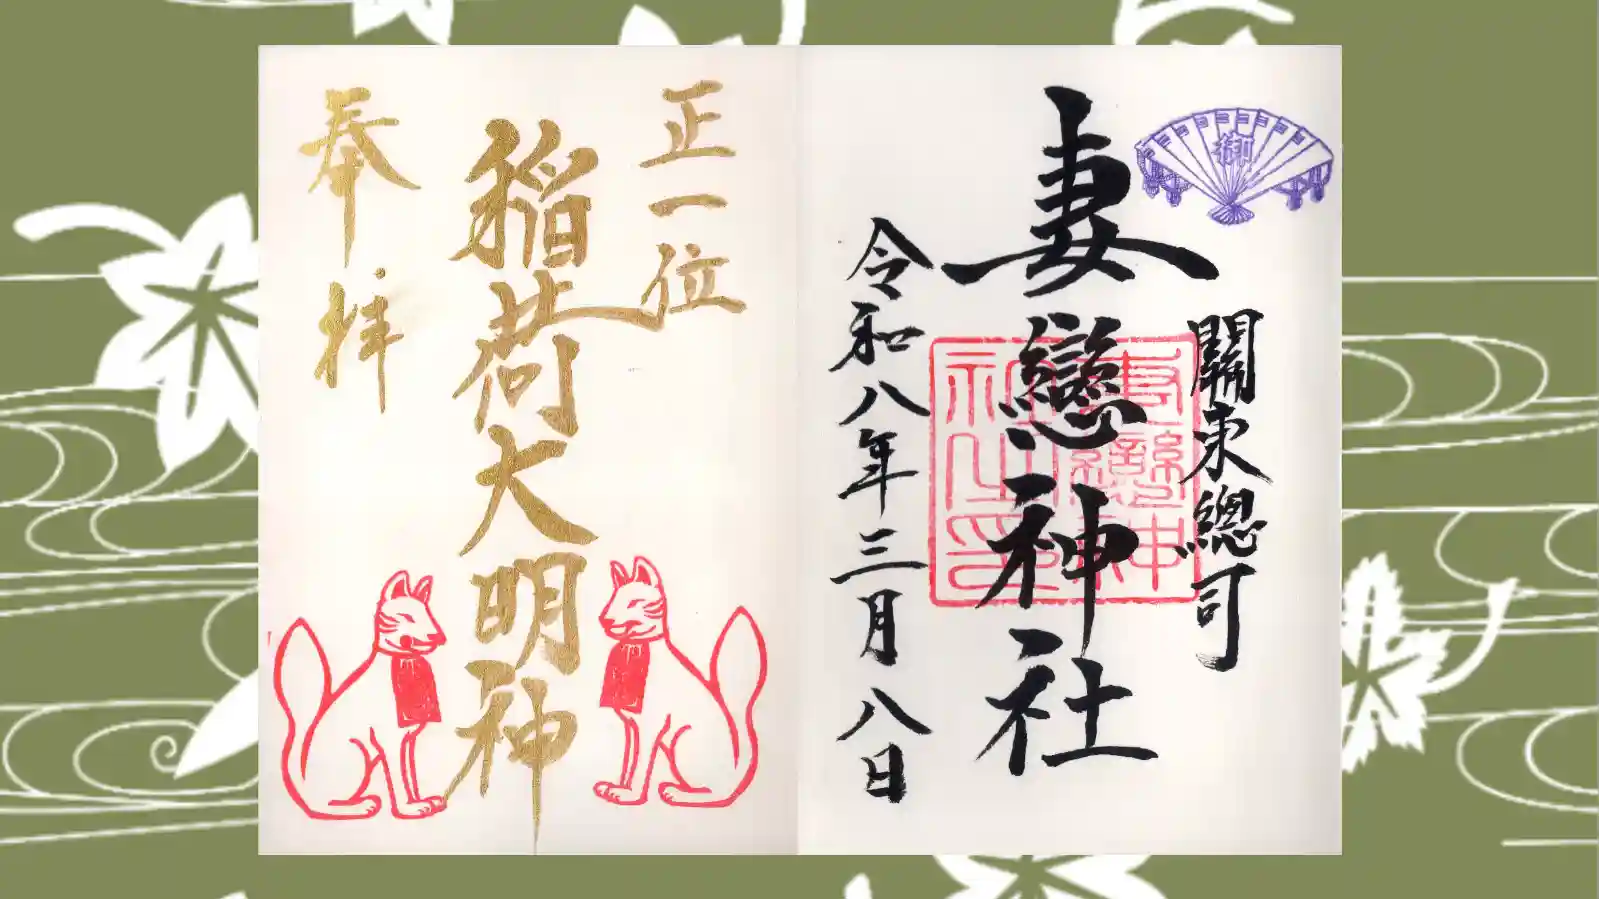 御
關東總司
妻戀神社
妻戀神
社之印
令和八年三月八日
正一位
稲荷大明神
奉拝